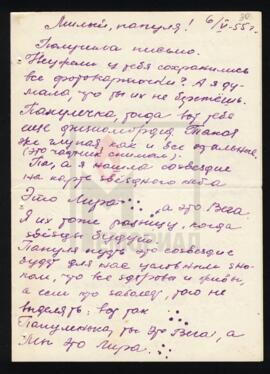 30
Милый, папуля! 6/V-55г.
Получила письмо.
Неужели у тебя сохранились
все фотокарточки? А я ду-
мала, что ты их не бережёшь.
Папулечка, тогда вот тебе
ещё физиономия. Такая
же глупая, как и все остальные.
(это снимал).
Па, а я нашла созвездие
на карте звёздного неба
Это Лира а это Вега.
Я их тоже разыщу, когда
звёзды будут.
Папуля пусть это созвездие
будет для нас условным зна-
ком, что все здоровы и живы,
а если кто заболел, того не
выделять: вот так
Папуленька, ты это Вега, а
мы это Лира.
МЕМОРИАЛ